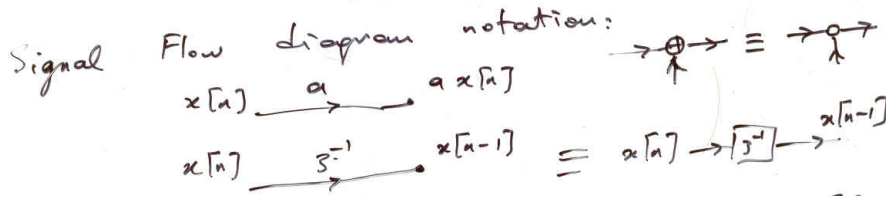 Signal Flow diagram notation: ≡
x[n] a a x[n]
x[n] z⁻¹ x[n-1] ≡ x[n] z⁻¹ x[n-1]